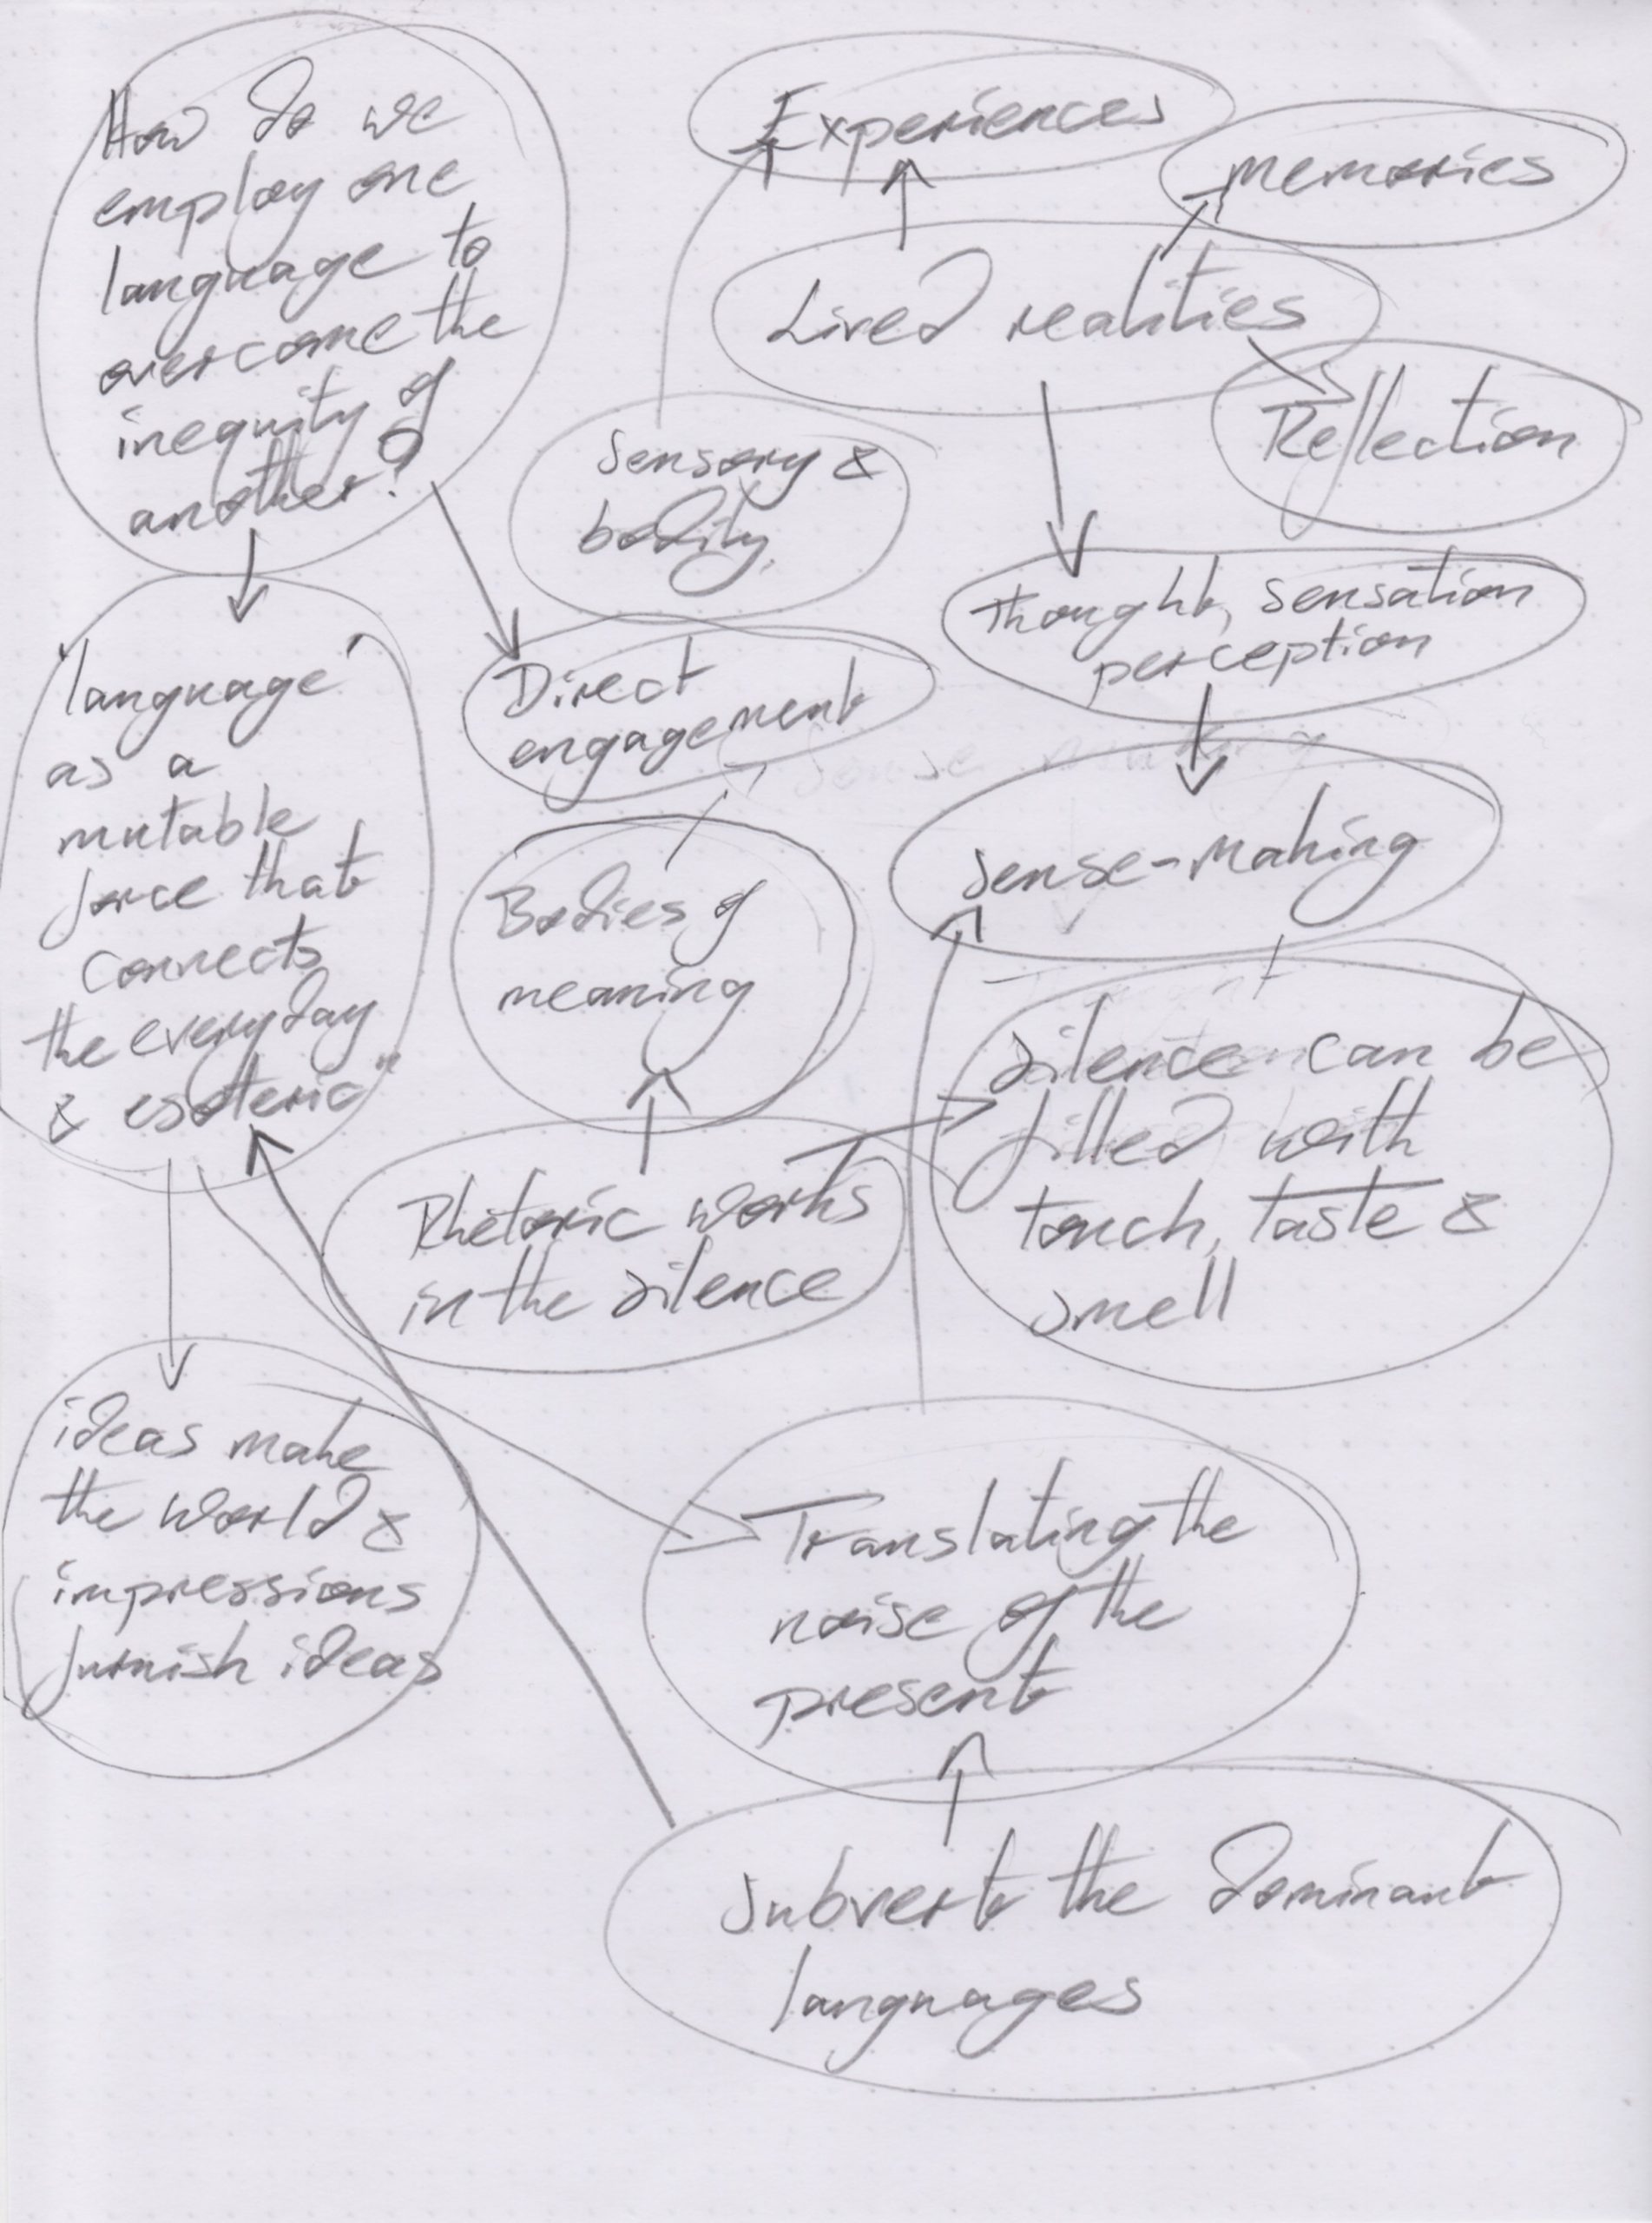 How do we
employ one
language to
overcome the
inequity of
another?
Experiences
memories
Lived realities
Reflection
Sensory &
bodily.
Thought, sensation
perception
"language'
as a
mutable
force that
connects
the everyday
& esoteric"
Direct
engagement
Sense making
Sense-making
Bodies of
meaning
Silence can be
filled with
touch, taste &
smell
Rhetoric works
in the silence
ideas make
the world &
impressions
furnish ideas
Translating the
noise of the
present
Subvert the dominant
languages